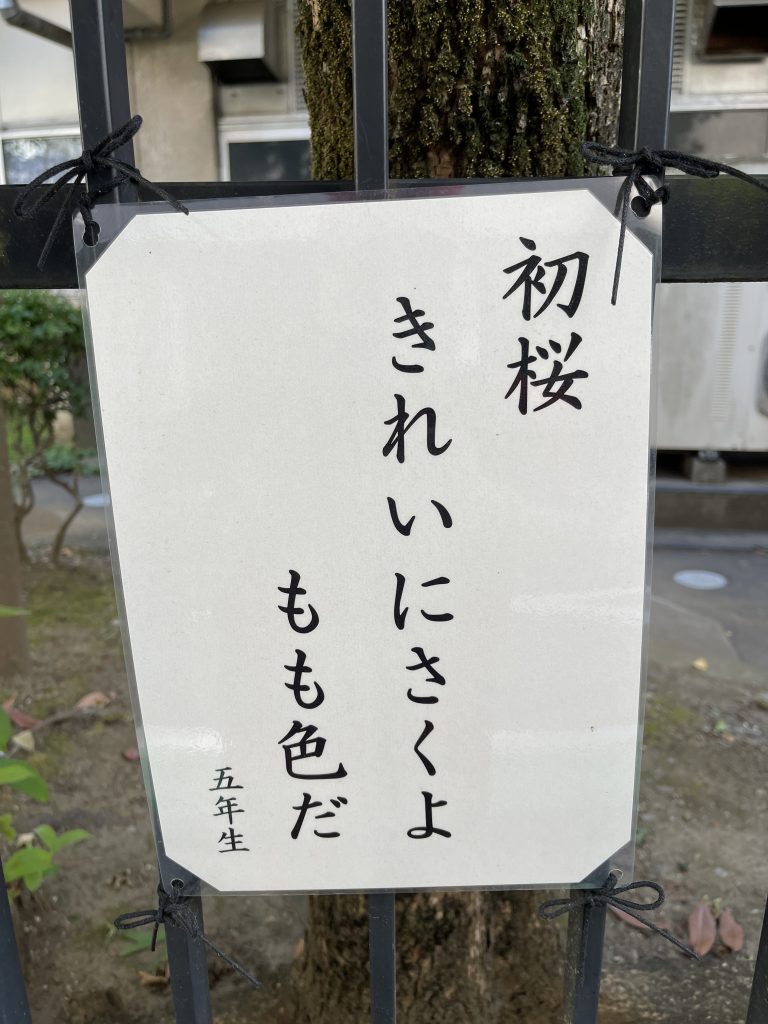 初桜
きれいにさくよ
もも色だ
五年生